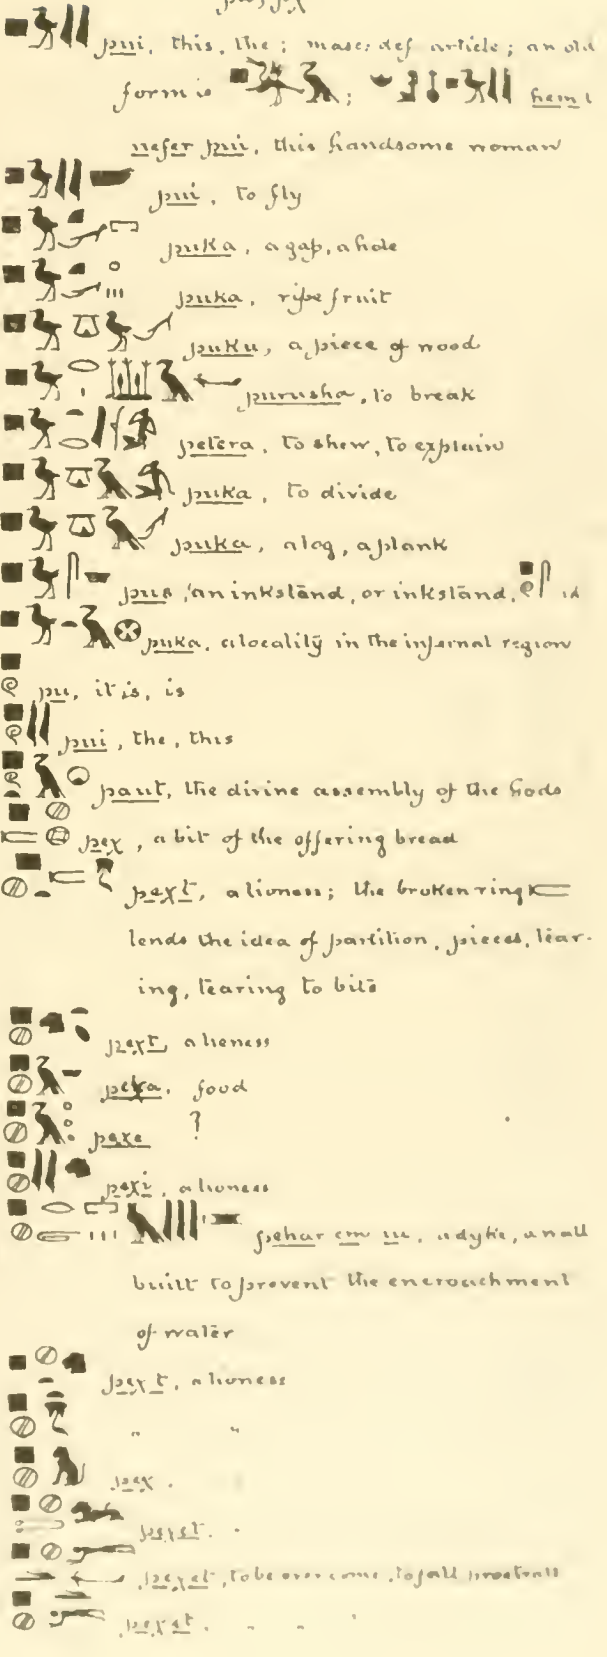 pui, this, the; masc: def article; an old
form is ; hem t
nefer pui, this handsome woman
pui, to fly
puka, a gap, a hole
puka, ripe fruit
puku, a piece of wood
purusha, to break
petera, to shew, to explain
puka, to divide
puka, a log, a plank
pus, an inkstand, or inkstand, id
puka, a locality in the infernal region
pu, it is, is
pui, the, this
paut, the divine assembly of the Gods
pex, a bit of the offering bread
pext, a lioness; the broken ring
lends the idea of partition, pieces, tear-
ing, tearing to bits
pext, a lieness
pexa, food
pexe ?
pexi, a lioness
pehar em m, a dyke, a wall
built to prevent the encroachment
of water
pext, a lioness
" "
pex.
pexet. "
pexet, to be overcome, to fall prostrate
pexet. " " "